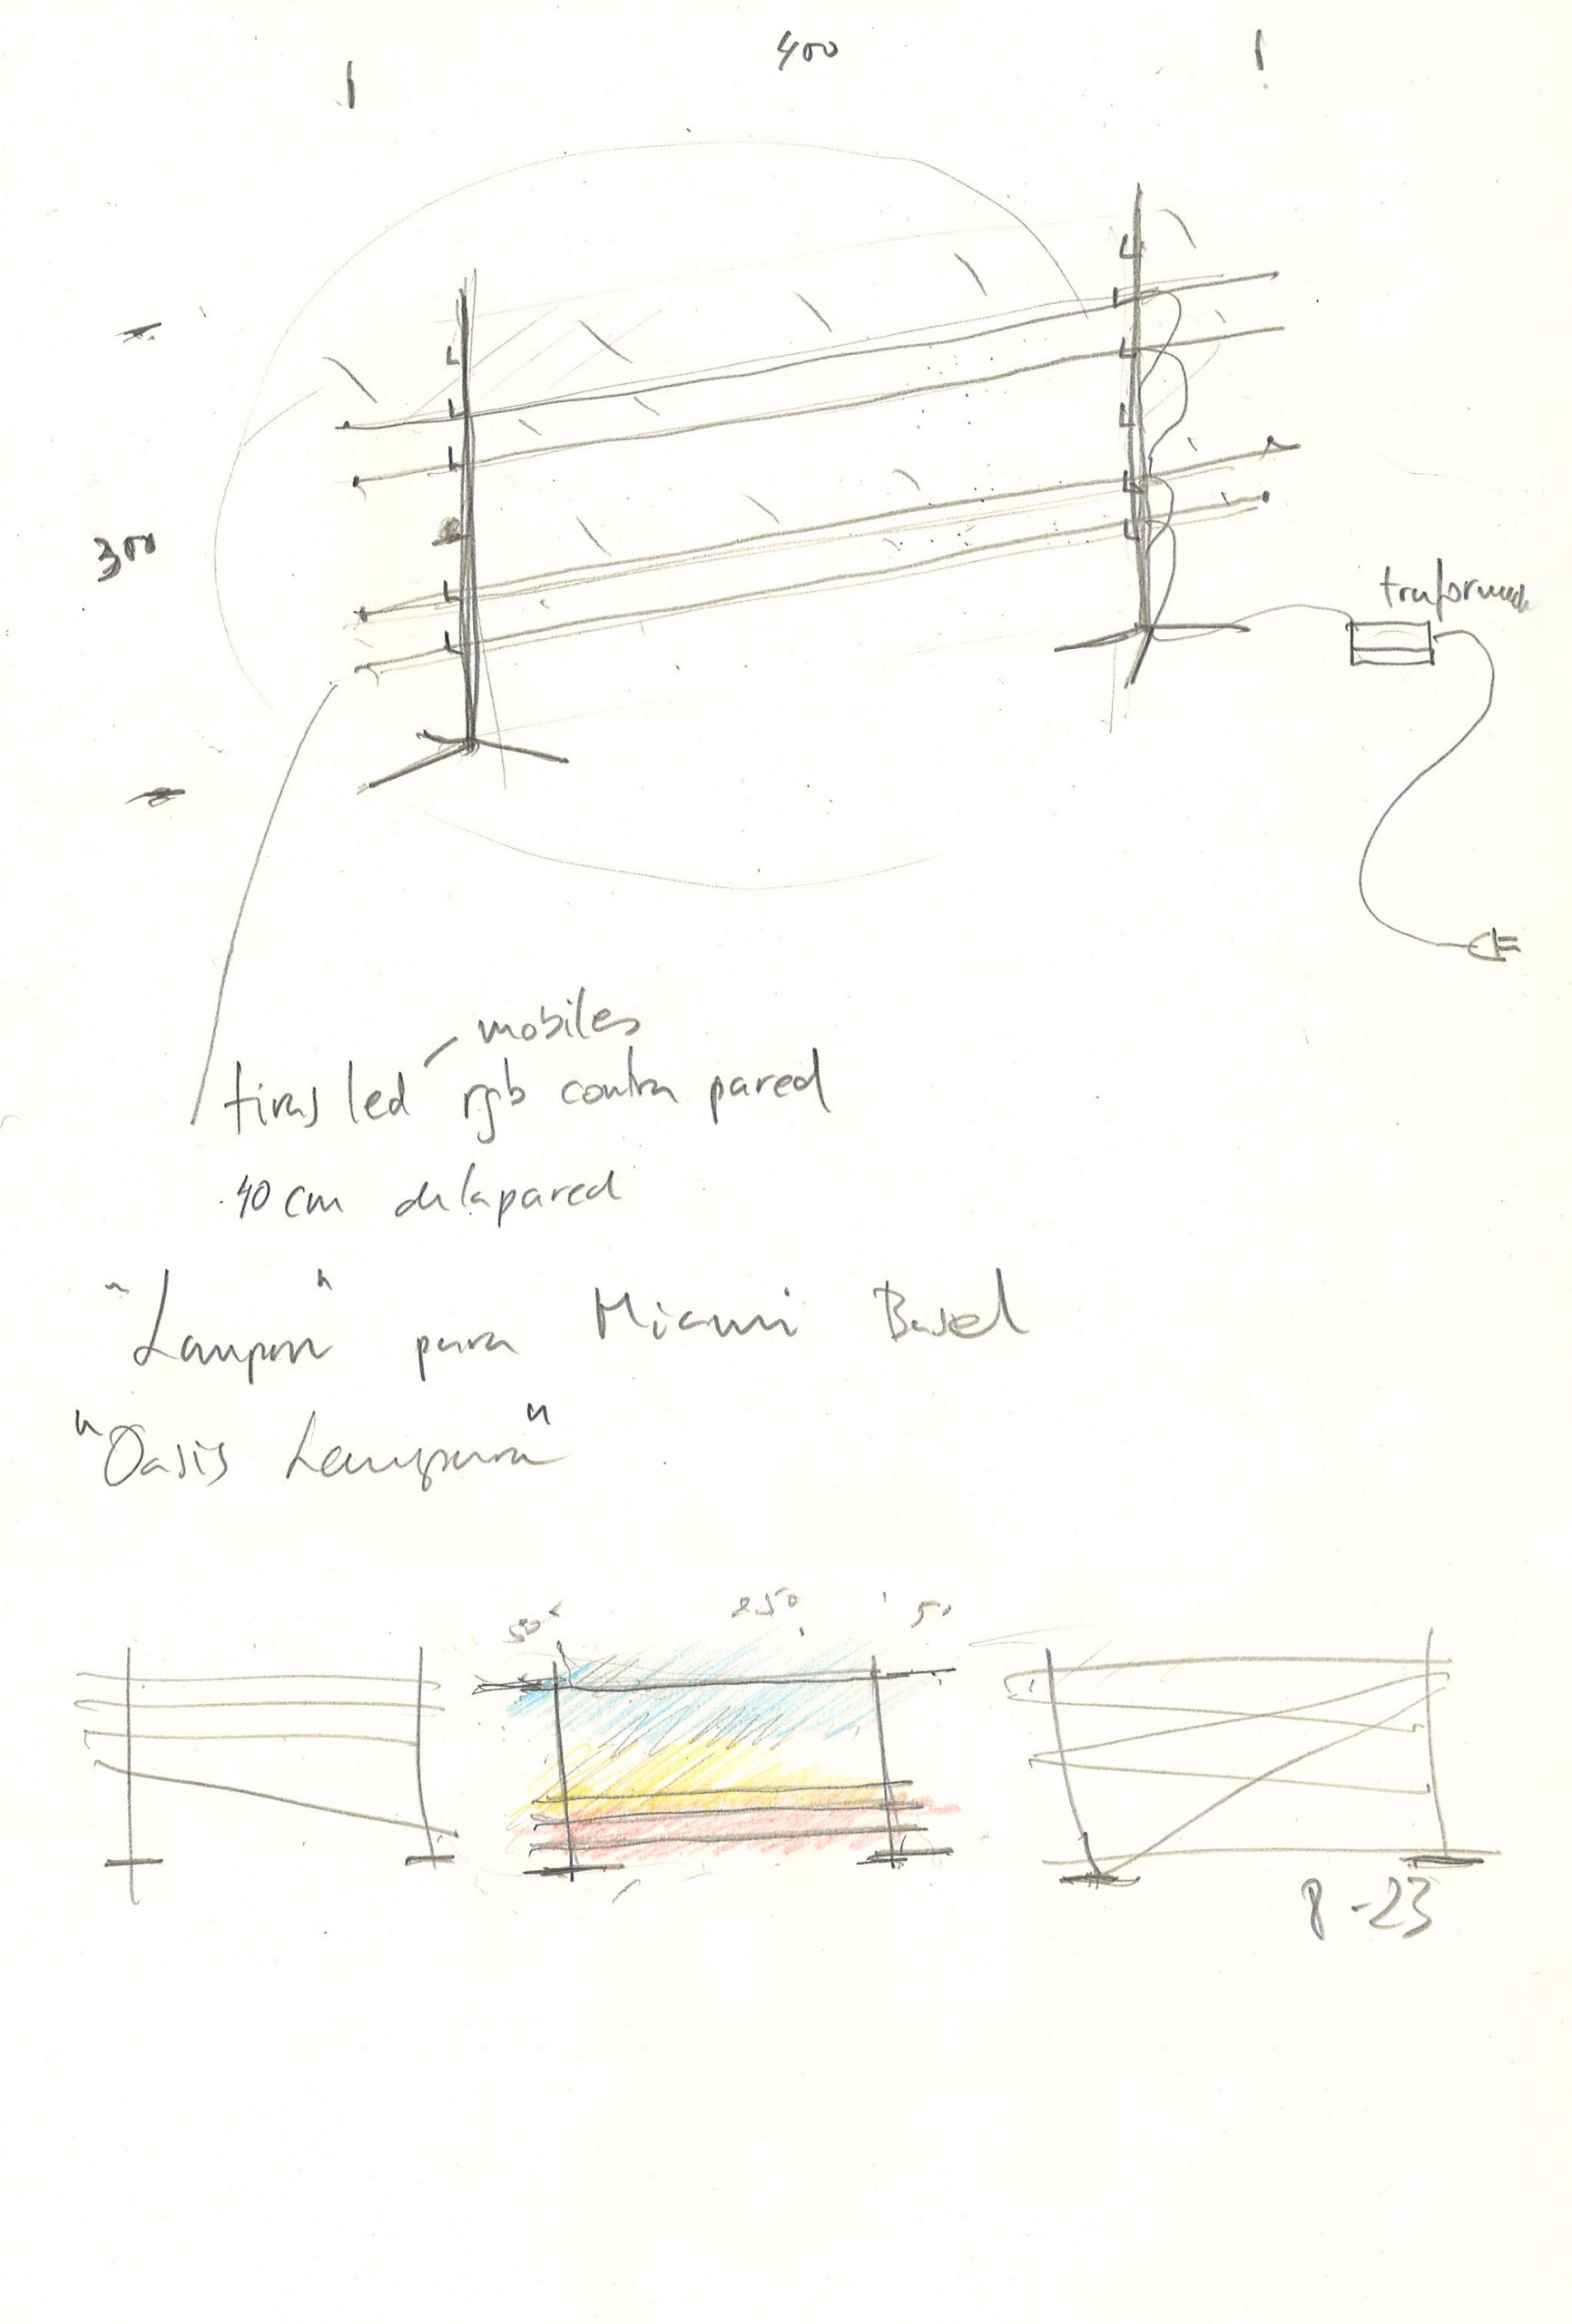 400
300
mobiles
tiras led rgb contra pared
40 cm de la pared
"Lampara" para Miami Basel
"Oasis Lampara"
50 250 50
8-23